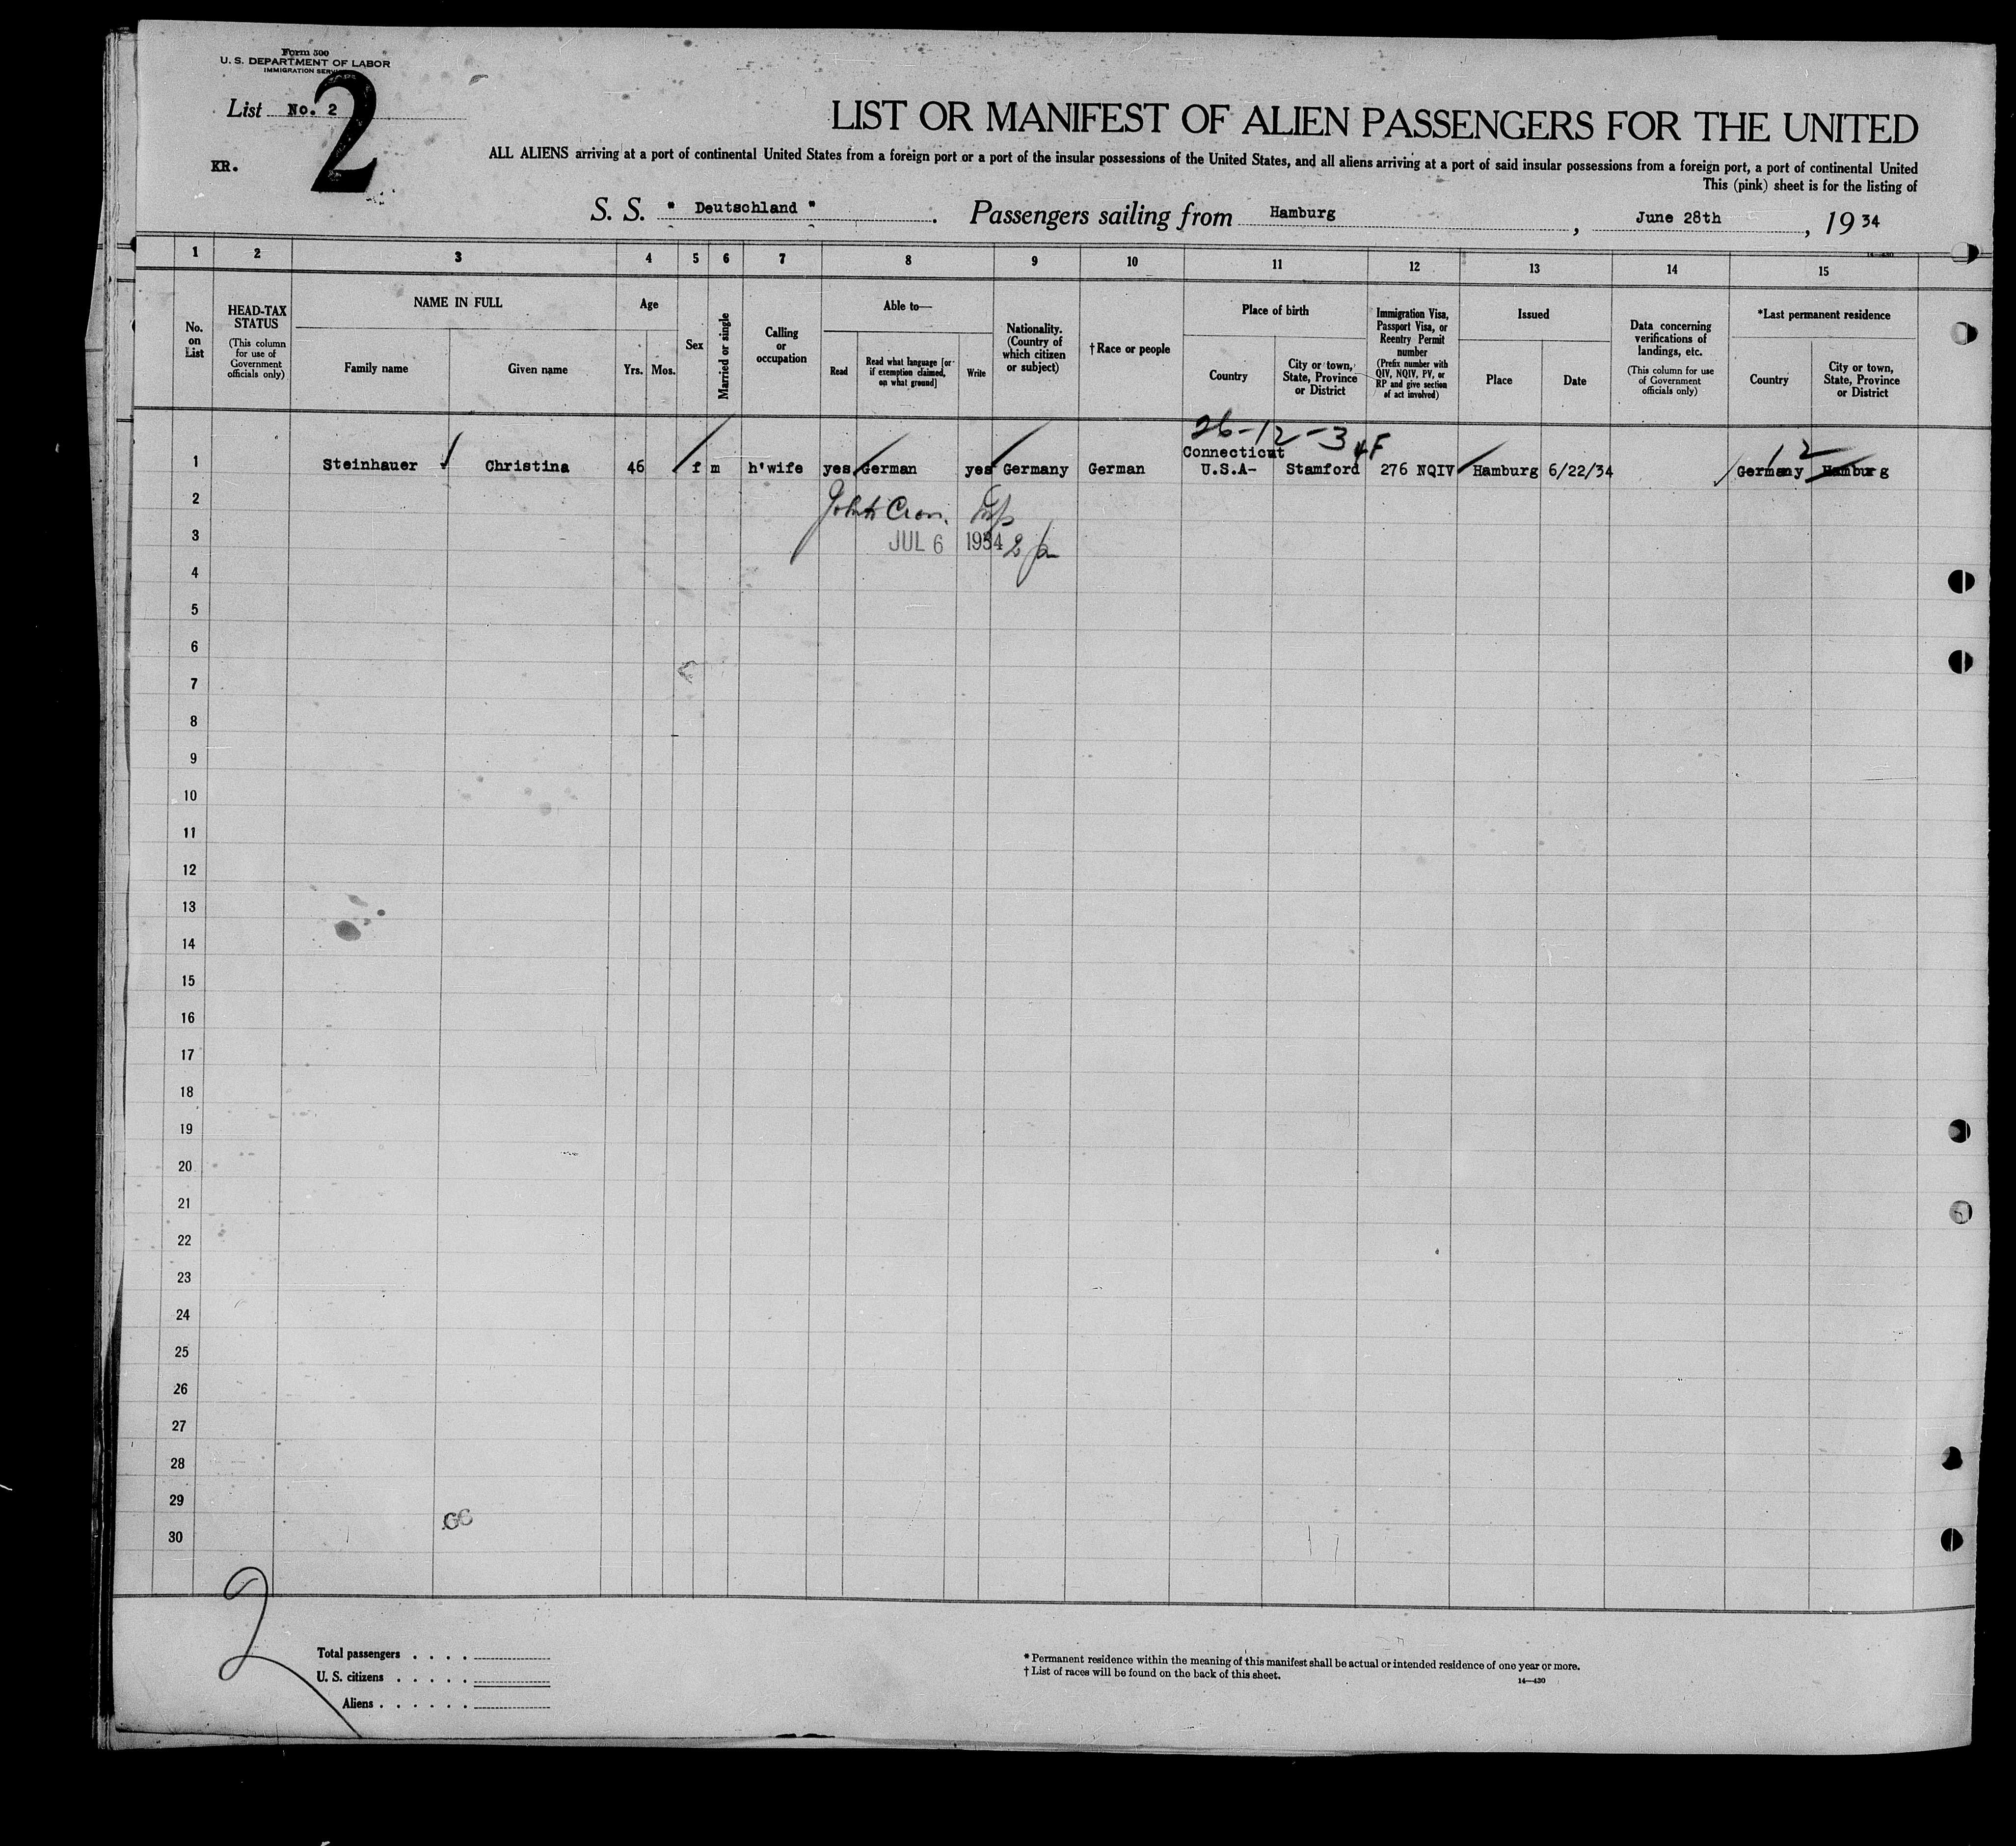 Form 500
U. S. DEPARTMENT OF LABOR
IMMIGRATION
List No. 2
2
KR.
LIST OR MANIFEST OF ALIEN PASSENGERS FOR THE UNITED
ALL ALIENS arriving at a port of continental United States from a foreign port or a port of the insular possessions of the United States, and all aliens arriving at a port of said insular possessions from a foreign port, a port of continental United
This (pink) sheet is for the listing of
S. S. " Deutschland " . Passengers sailing from Hamburg , June 28th , 19 34
14—430
1 2 3 4 5 6 7 8 9 10 11 12 13 14 15
No. on List
HEAD-TAX STATUS
(This column for use of Government officials only)
NAME IN FULL
Family name
Given name
Age
Yrs. Mos.
Sex
Married or single
Calling or occupation
Able to—
Read
Read what language [or if exemption claimed, on what ground]
Write
Nationality. (Country of which citizen or subject)
†Race or people
Place of birth
Country
City or town, State, Province or District
Immigration Visa, Passport Visa, or Reentry Permit number
(Prefix number with QIV, NQIV, PV, or RP and give section of act involved)
Issued
Place
Date
Data concerning verifications of landings, etc.
(This column for use of Government officials only)
*Last permanent residence
Country
City or town, State, Province or District
26-12-3
4F
Connecticut
12
1 Steinhauer Christina 46 f m h'wife yes German yes Germany German U.S.A- Stamford 276 NQIV Hamburg 6/22/34 Germany Hamburg
2
3 JUL 6 1934
4
5
6
7
8
9
10
11
12
13
14
15
16
17
18
19
20
21
22
23
24
25
26
27
28
29
30
2
Total passengers . . . .
U. S. citizens . . . . .
Aliens . . . . . .
* Permanent residence within the meaning of this manifest shall be actual or intended residence of one year or more.
† List of races will be found on the back of this sheet.
14—430